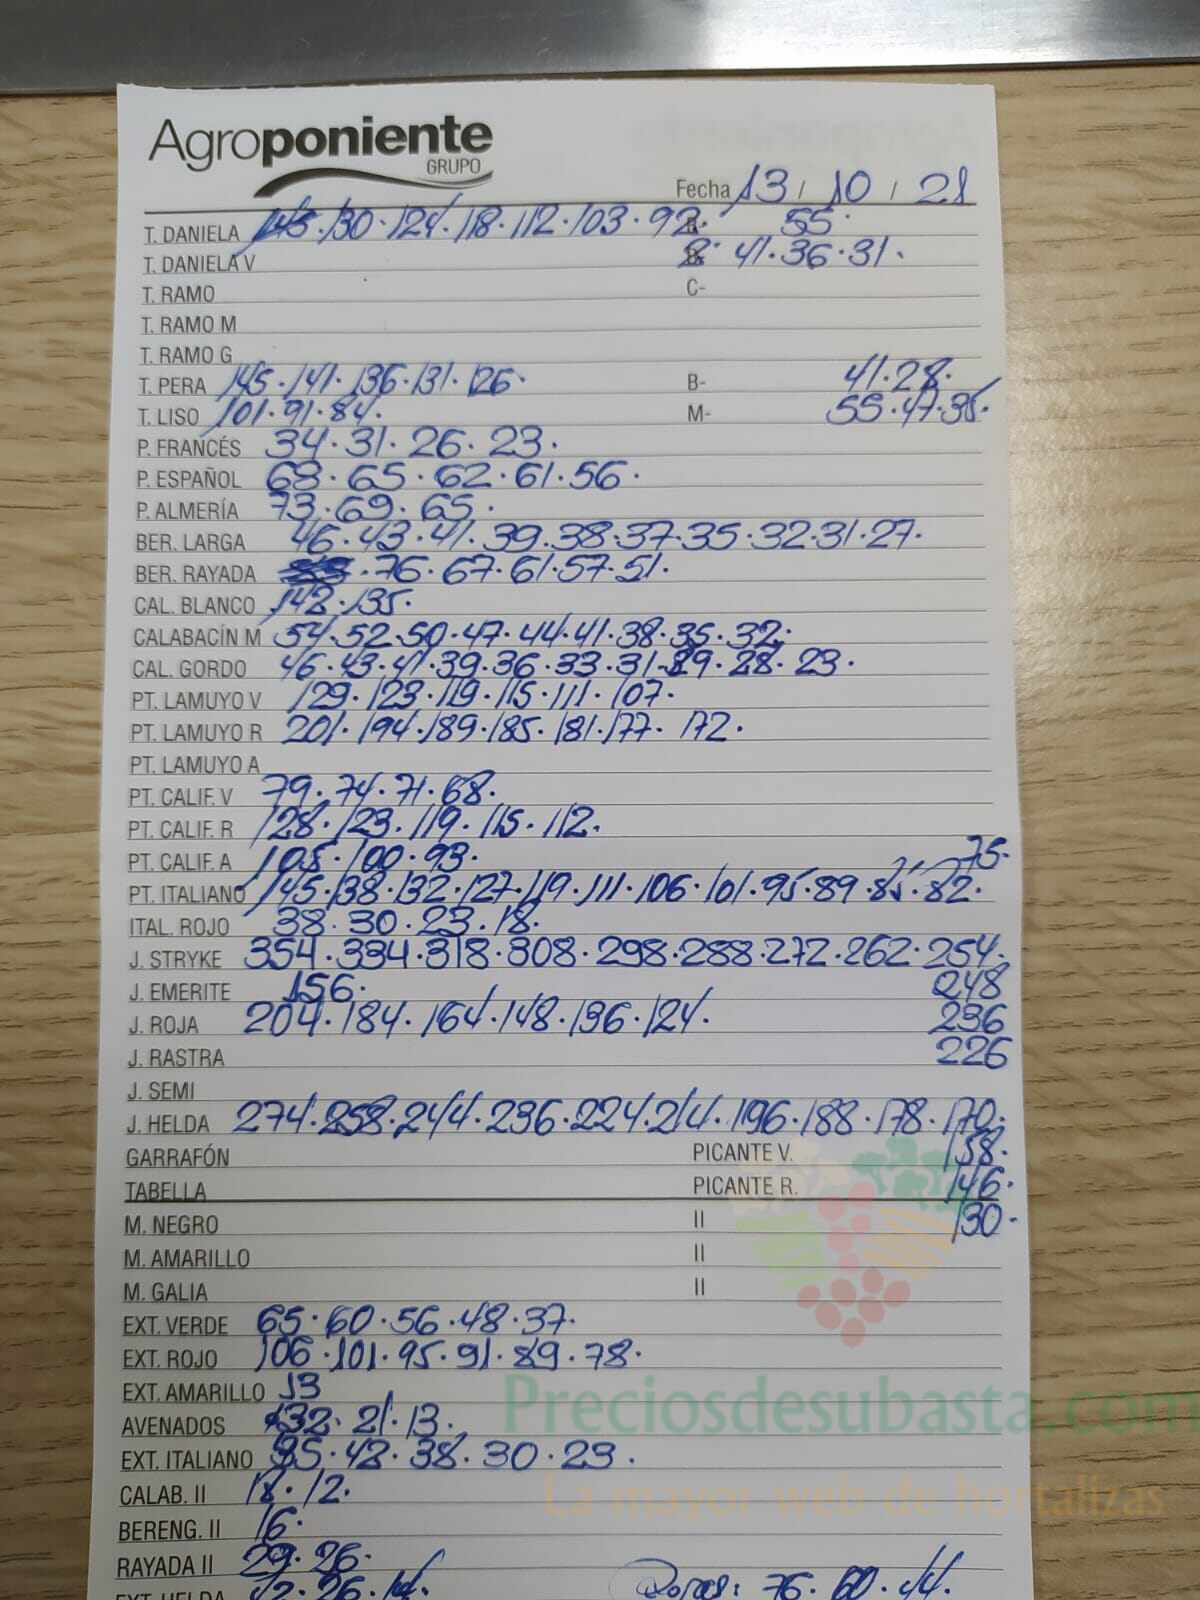 Agroponiente
GRUPO
Fecha 13 / 10 / 21
T. DANIELA 145·130·124·118·112·103·92· 55·
T. DANIELA V B· 41·36·31·
T. RAMO C-
T. RAMO M
T. RAMO G
T. PERA 145·141·136·131·126· B- 41·28·
T. LISO 101·91·84· M- 55·47·35·
P. FRANCÉS 34·31·26·23·
P. ESPAÑOL 68·65·62·61·56·
P. ALMERÍA 73·69·65·
BER. LARGA 46·43·41·39·38·37·35·32·31·27·
BER. RAYADA ·76·67·61·57·51·
CAL. BLANCO 142·135·
CALABACÍN M 54·52·50·47·44·41·38·35·32·
CAL. GORDO 46·43·41·39·36·33·31·29·28·23·
PT. LAMUYO V 129·123·119·115·111·107·
PT. LAMUYO R 201·194·189·185·181·177·172·
PT. LAMUYO A
PT. CALIF. V 79·74·71·68·
PT. CALIF. R 128·123·119·115·112·
PT. CALIF. A 105·100·93· 75·
PT. ITALIANO 145·138·132·127·119·111·106·101·95·89·85·82·
ITAL. ROJO 38·30·23·18·
J. STRYKE 354·334·318·308·298·288·272·262·254·
J. EMERITE 156· 248
J. ROJA 204·184·164·148·136·124· 236
J. RASTRA 226
J. SEMI
J. HELDA 274·258·244·236·224·214·196·188·178·170·
GARRAFÓN PICANTE V. 158·
TABELLA PICANTE R. 146·
M. NEGRO II 130·
M. AMARILLO II
M. GALIA II
EXT. VERDE 65·60·56·48·37·
EXT. ROJO 106·101·95·91·89·78·
EXT. AMARILLO 13
Preciosdesubasta.com
AVENADOS 32·21·13·
EXT. ITALIANO 35·42·38·30·23·
La mayor web de hortalizas
CALAB. II 18·12·
BERENG. II 16·
RAYADA II 29·26·
EXT. HELDA 42·26·14· 76·60·44·